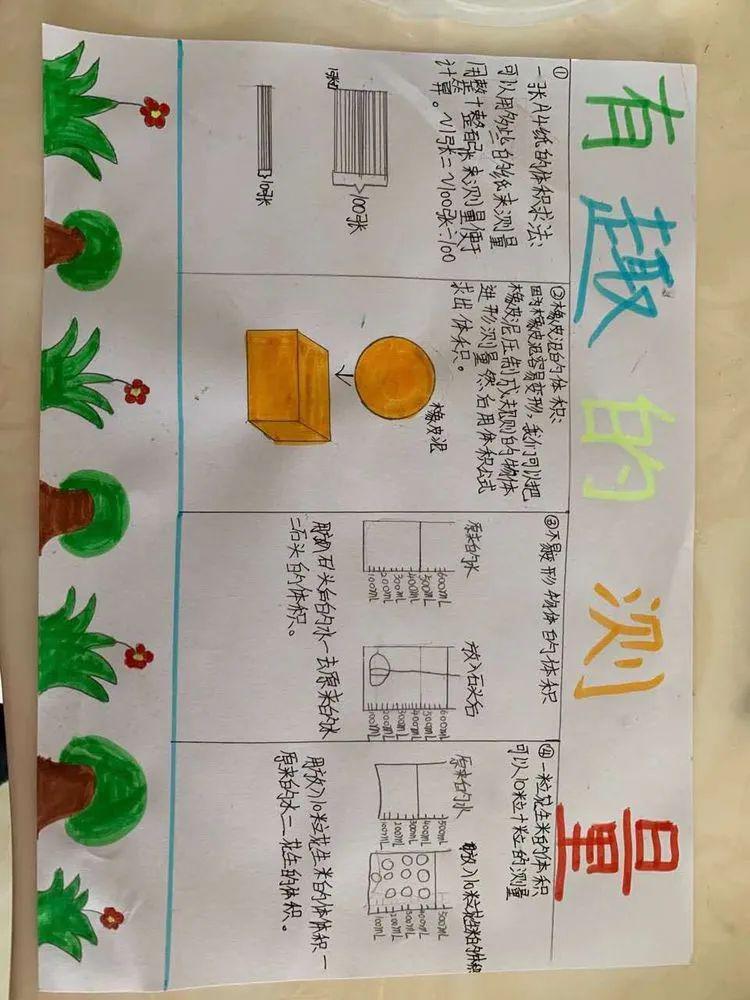 有趣的测量
①
一张A4纸的体积求法:
可以用多些的纸来测量
用整十整百张来测量便于
计算。V1张=V100张÷100
1张
100张
10张
②橡皮泥的体积:
因为橡皮泥容易变形,我们可以把
橡皮泥压制成规则的物体
进形测量然后用体积公式
求出体积。
橡皮泥
③不易变形物体的体积
原来的水
600mL
500mL
400mL
300mL
200mL
100mL
放入石头后
600mL
500mL
400mL
300mL
200mL
100mL
用放石头后的水一去原来的水
二石头的体积。
④一粒花生米的体积
可以10粒十粒的测量
原来的水
500mL
400mL
300mL
200mL
100mL
放入10粒花生米的体积
500mL
400mL
300mL
200mL
100mL
用放入10粒花生米的体体积一
原来的水二花生的体积。